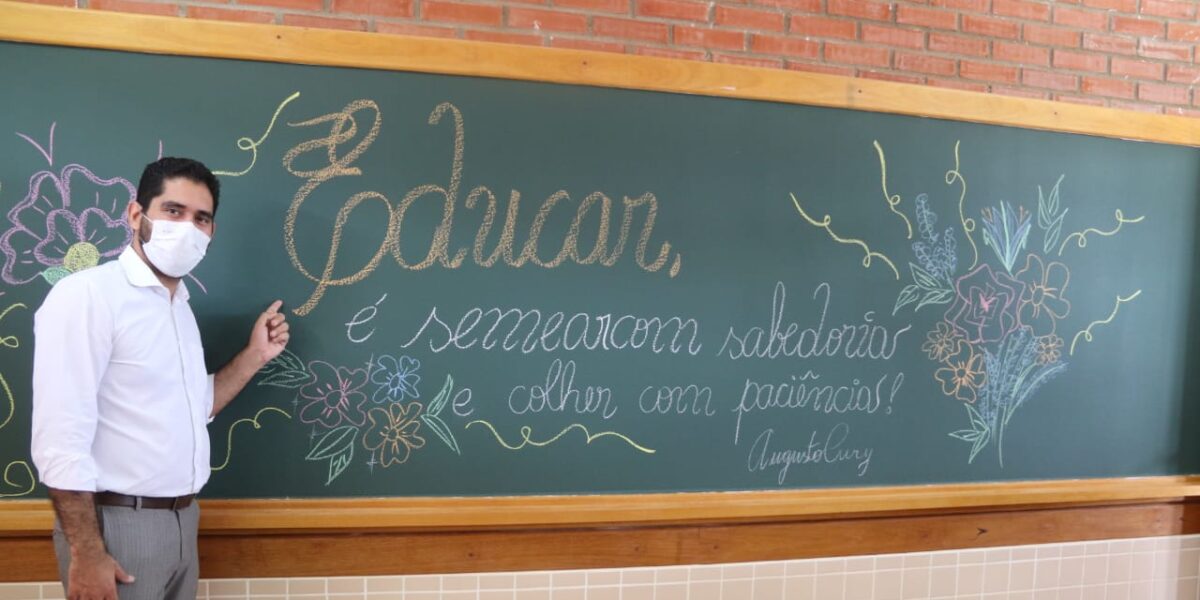 Educar,
é semear com sabedoria
e colher com paciência!
Augusto Cury